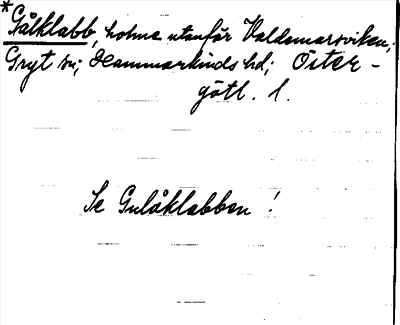 *Gålklabb, holme utanför Valdemarsviken;
Gryt sn; Hammarkinds hd; Öster-
götl. l.
Se Gulåklabben!